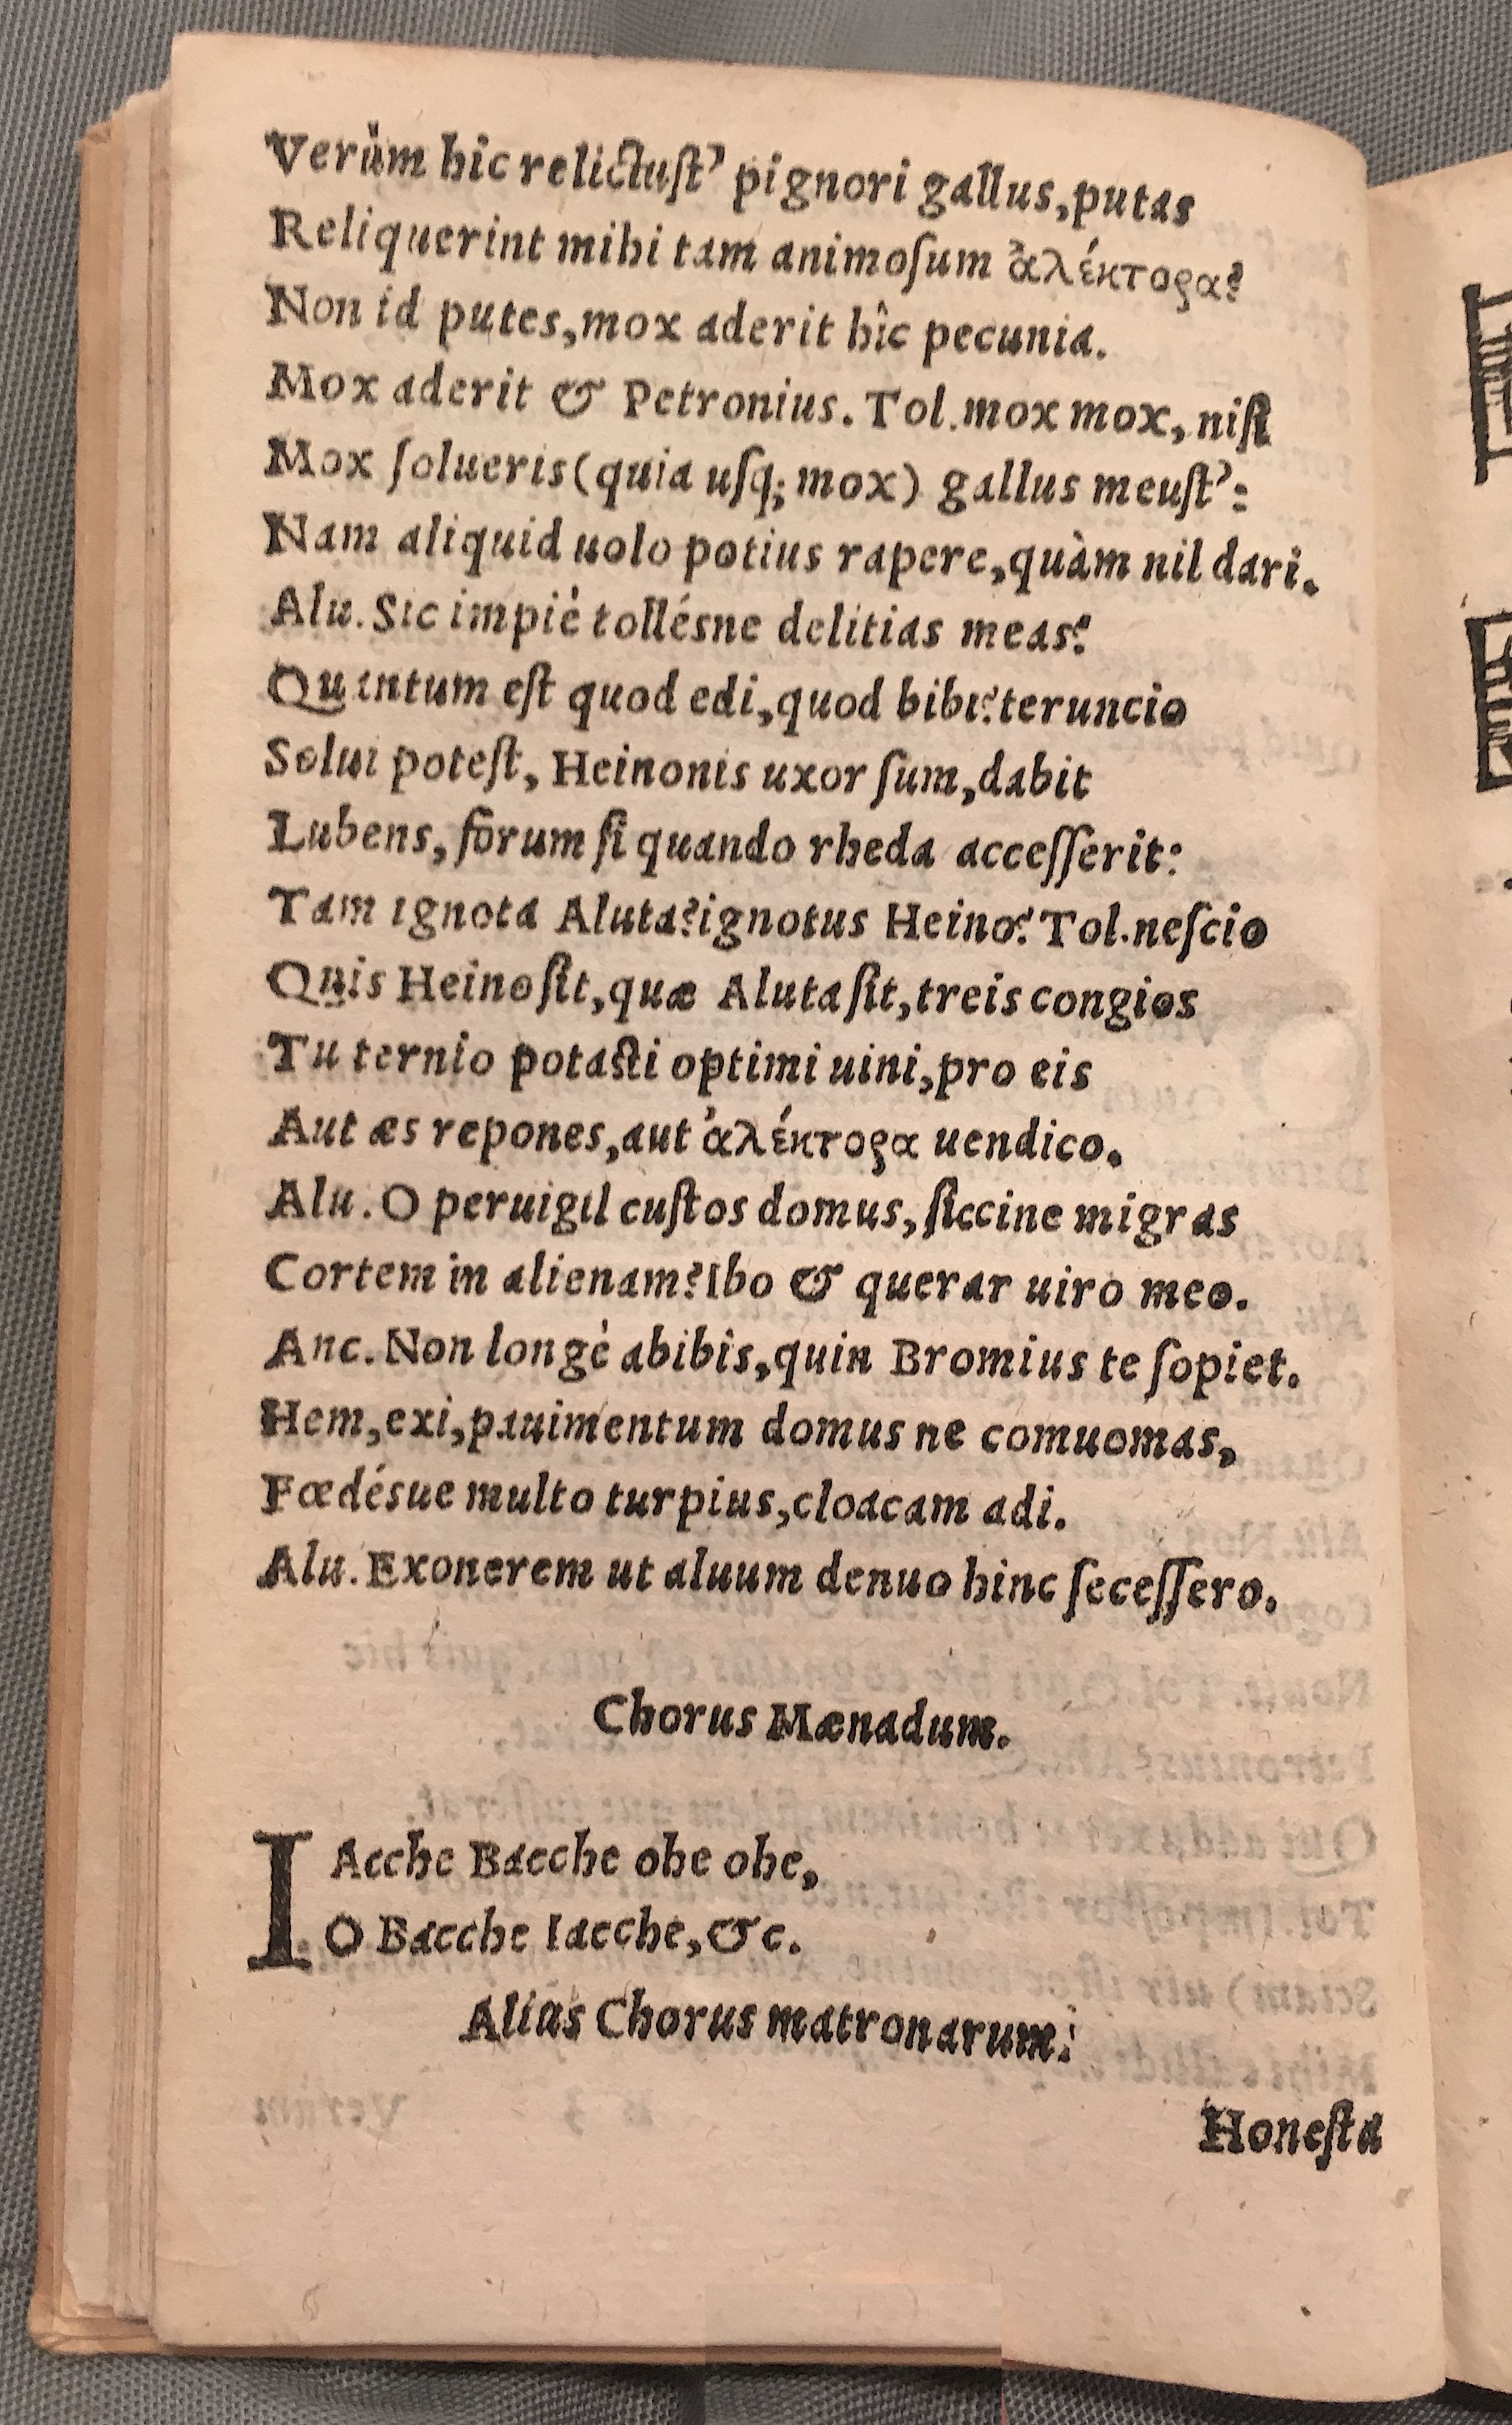 Verùm hic relictuſt’ pignori gallus, putas
Reliquerint mihi tam animoſum ἀλέκτορα?
Non id putes, mox aderit hîc pecunia.
Mox aderit & Petronius. Tol. mox mox, niſi
Mox ſolueris (quia uſq; mox) gallus meuſt’:
Nam aliquid uolo potius rapere, quàm nil dari.
Alu. Sic impiè tollésne delitias meas?
Quantum eſt quod edi, quod bibi? teruncio
Solui poteſt, Heinonis uxor ſum, dabit
Lubens, forum ſi quando rheda acceſſerit:
Tam ignota Aluta? ignotus Heino? Tol. neſcio
Quis Heino ſit, quæ Aluta ſit, treis congios
Tu ternio potaſti optimi uini, pro eis
Aut æs repones, aut ἀλέκτορα uendico.
Alu. O peruigil cuſtos domus, ſiccine migras
Cortem in alienam? Ibo & querar uiro meo.
Anc. Non longè abibis, quin Bromius te ſopiet.
Hem, exi, pauimentum domus ne comuomas,
Fœdésue multo turpius, cloacam adi.
Alu. Exonerem ut aluum denuo hinc ſeceſſero.
Chorus Mænadum.
IAcche Bacche ohe ohe,
O Bacche Iacche, &c.
Alias Chorus matronarum:
Honeſta